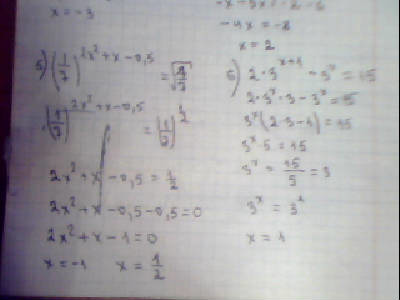 x = -3
-4x = -8
x = 2
5) (1/7)^(2x²+x-0,5) = √(1/7)
(1/7)^(2x²+x-0,5) = (1/7)^(1/2)
2x² + x - 0,5 = 1/2
2x² + x - 0,5 - 0,5 = 0
2x² + x - 1 = 0
x = -1   x = 1/2
6) 2·3^(x+1) - 3^x = 15
2·3^x·3 - 3^x = 15
3^x(2·3-1) = 15
3^x·5 = 15
3^x = 15/5 = 3
3^x = 3^1
x = 1